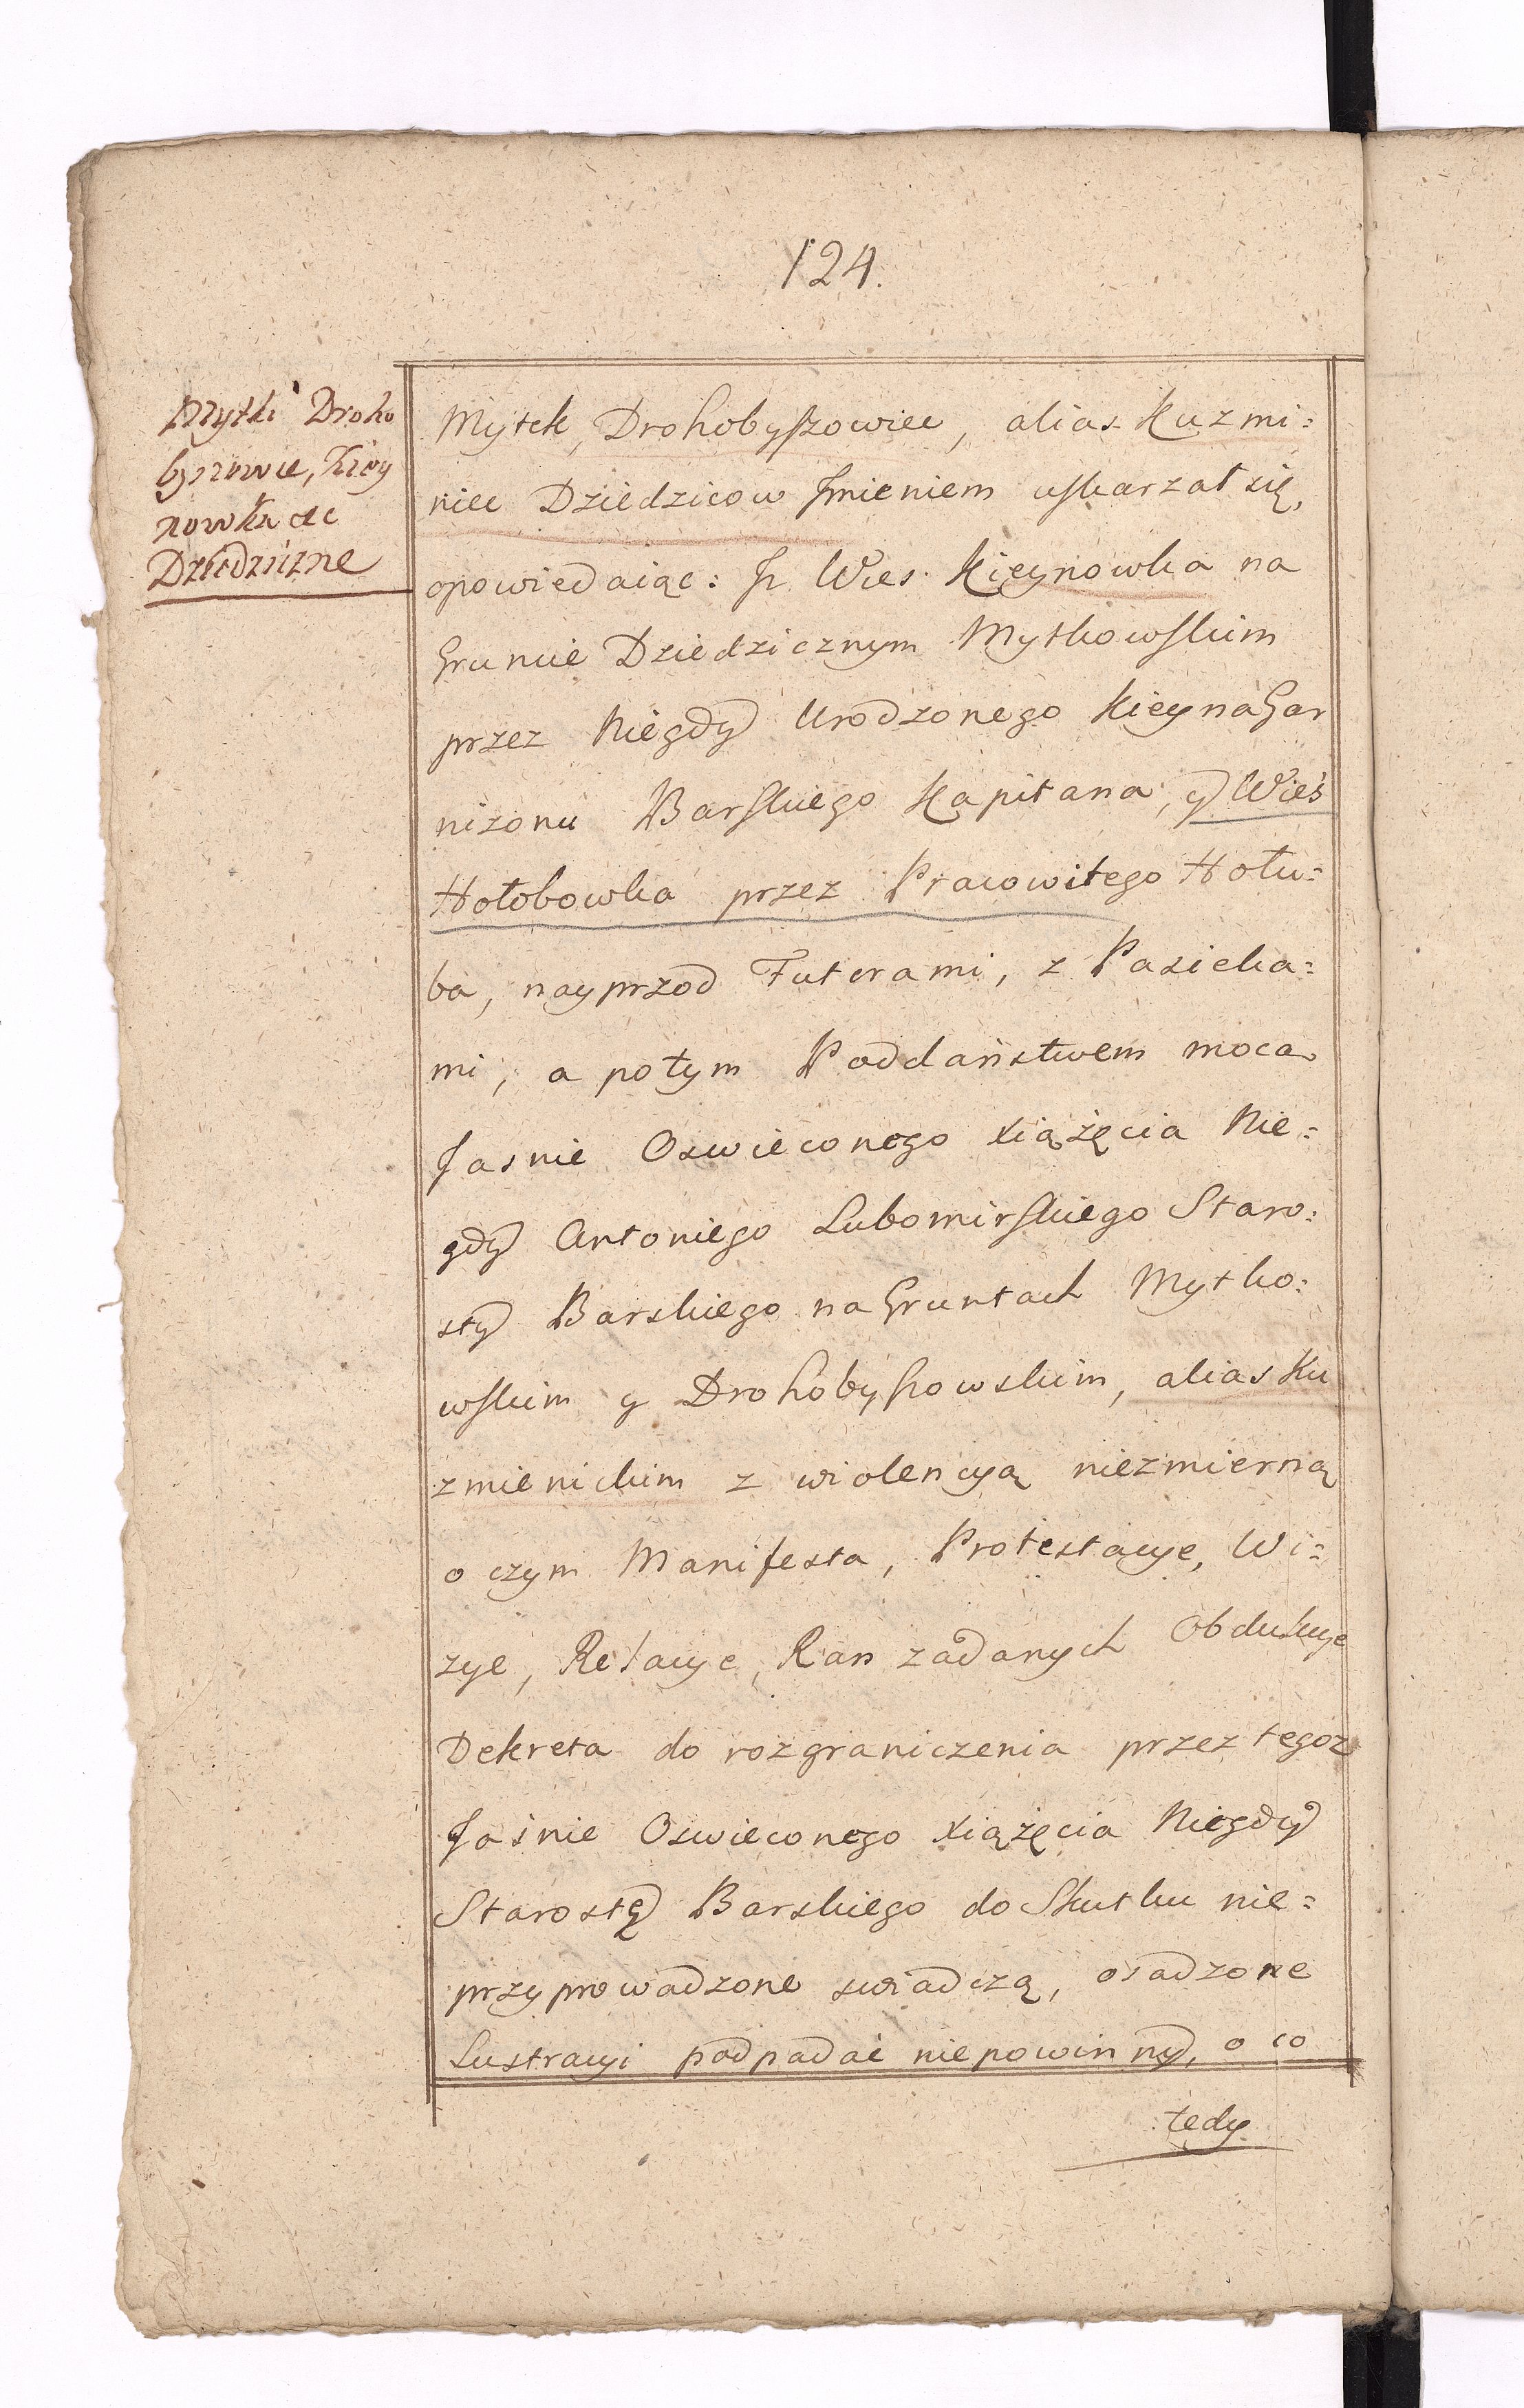 124.
Mytki Droho
byszowie, Kiey
nowka etc
Dziedziczne
Mytek, Drohobyszowiec, alias Kuzmi=
niec Dziedzicow Imieniem uskarzał się,
opowiedaiąc: Iż Wies Kieynowka na
Gruncie Dziedzicznym Mytkowskim
przez Niegdy Urodzonego Kieyna Gar
nizonu Barskiego Kapitana, y Wieś
Hołobowka przez Pracowitego Hołu=
ba, nayprzod Futorami, z Pasieka=
mi, a potym Poddaństwem mocą
Jasnie Oswieconego Xiążęcia Nie=
gdy Antoniego Lubomirskiego Staro=
sty Barskiego na Gruntach Mytko=
wskim y Drohobyszowskim, alias Ku
zmienickim z wiolencyą niezmierną
o czym Manifesta, Protestacye, Wi=
zye, Relacye, Ran zadanych Obdukcye
Dekreta do rozgraniczenia przez tegoz
Jaśnie Oswieconego Xiążęcia Niegdy
Starostę Barskiego do Skutku nie=
przyprowadzone swiadczą, osadzone
Lustracyi podpadać niepowinny, o co
tedy